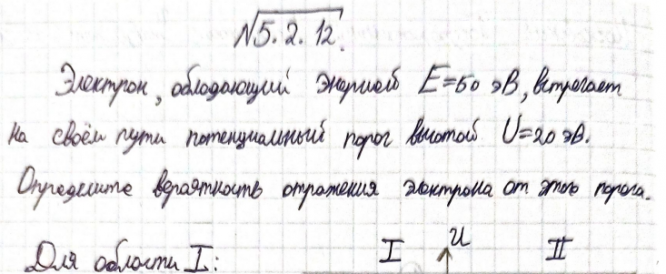 №5.2.12.
Электрон, обладающий энергией E=50 эВ, встречает
на своём пути потенциальный порог высотой U=20 эВ.
Определите вероятность отражения электрона от этого порога.
Для области I: I U II